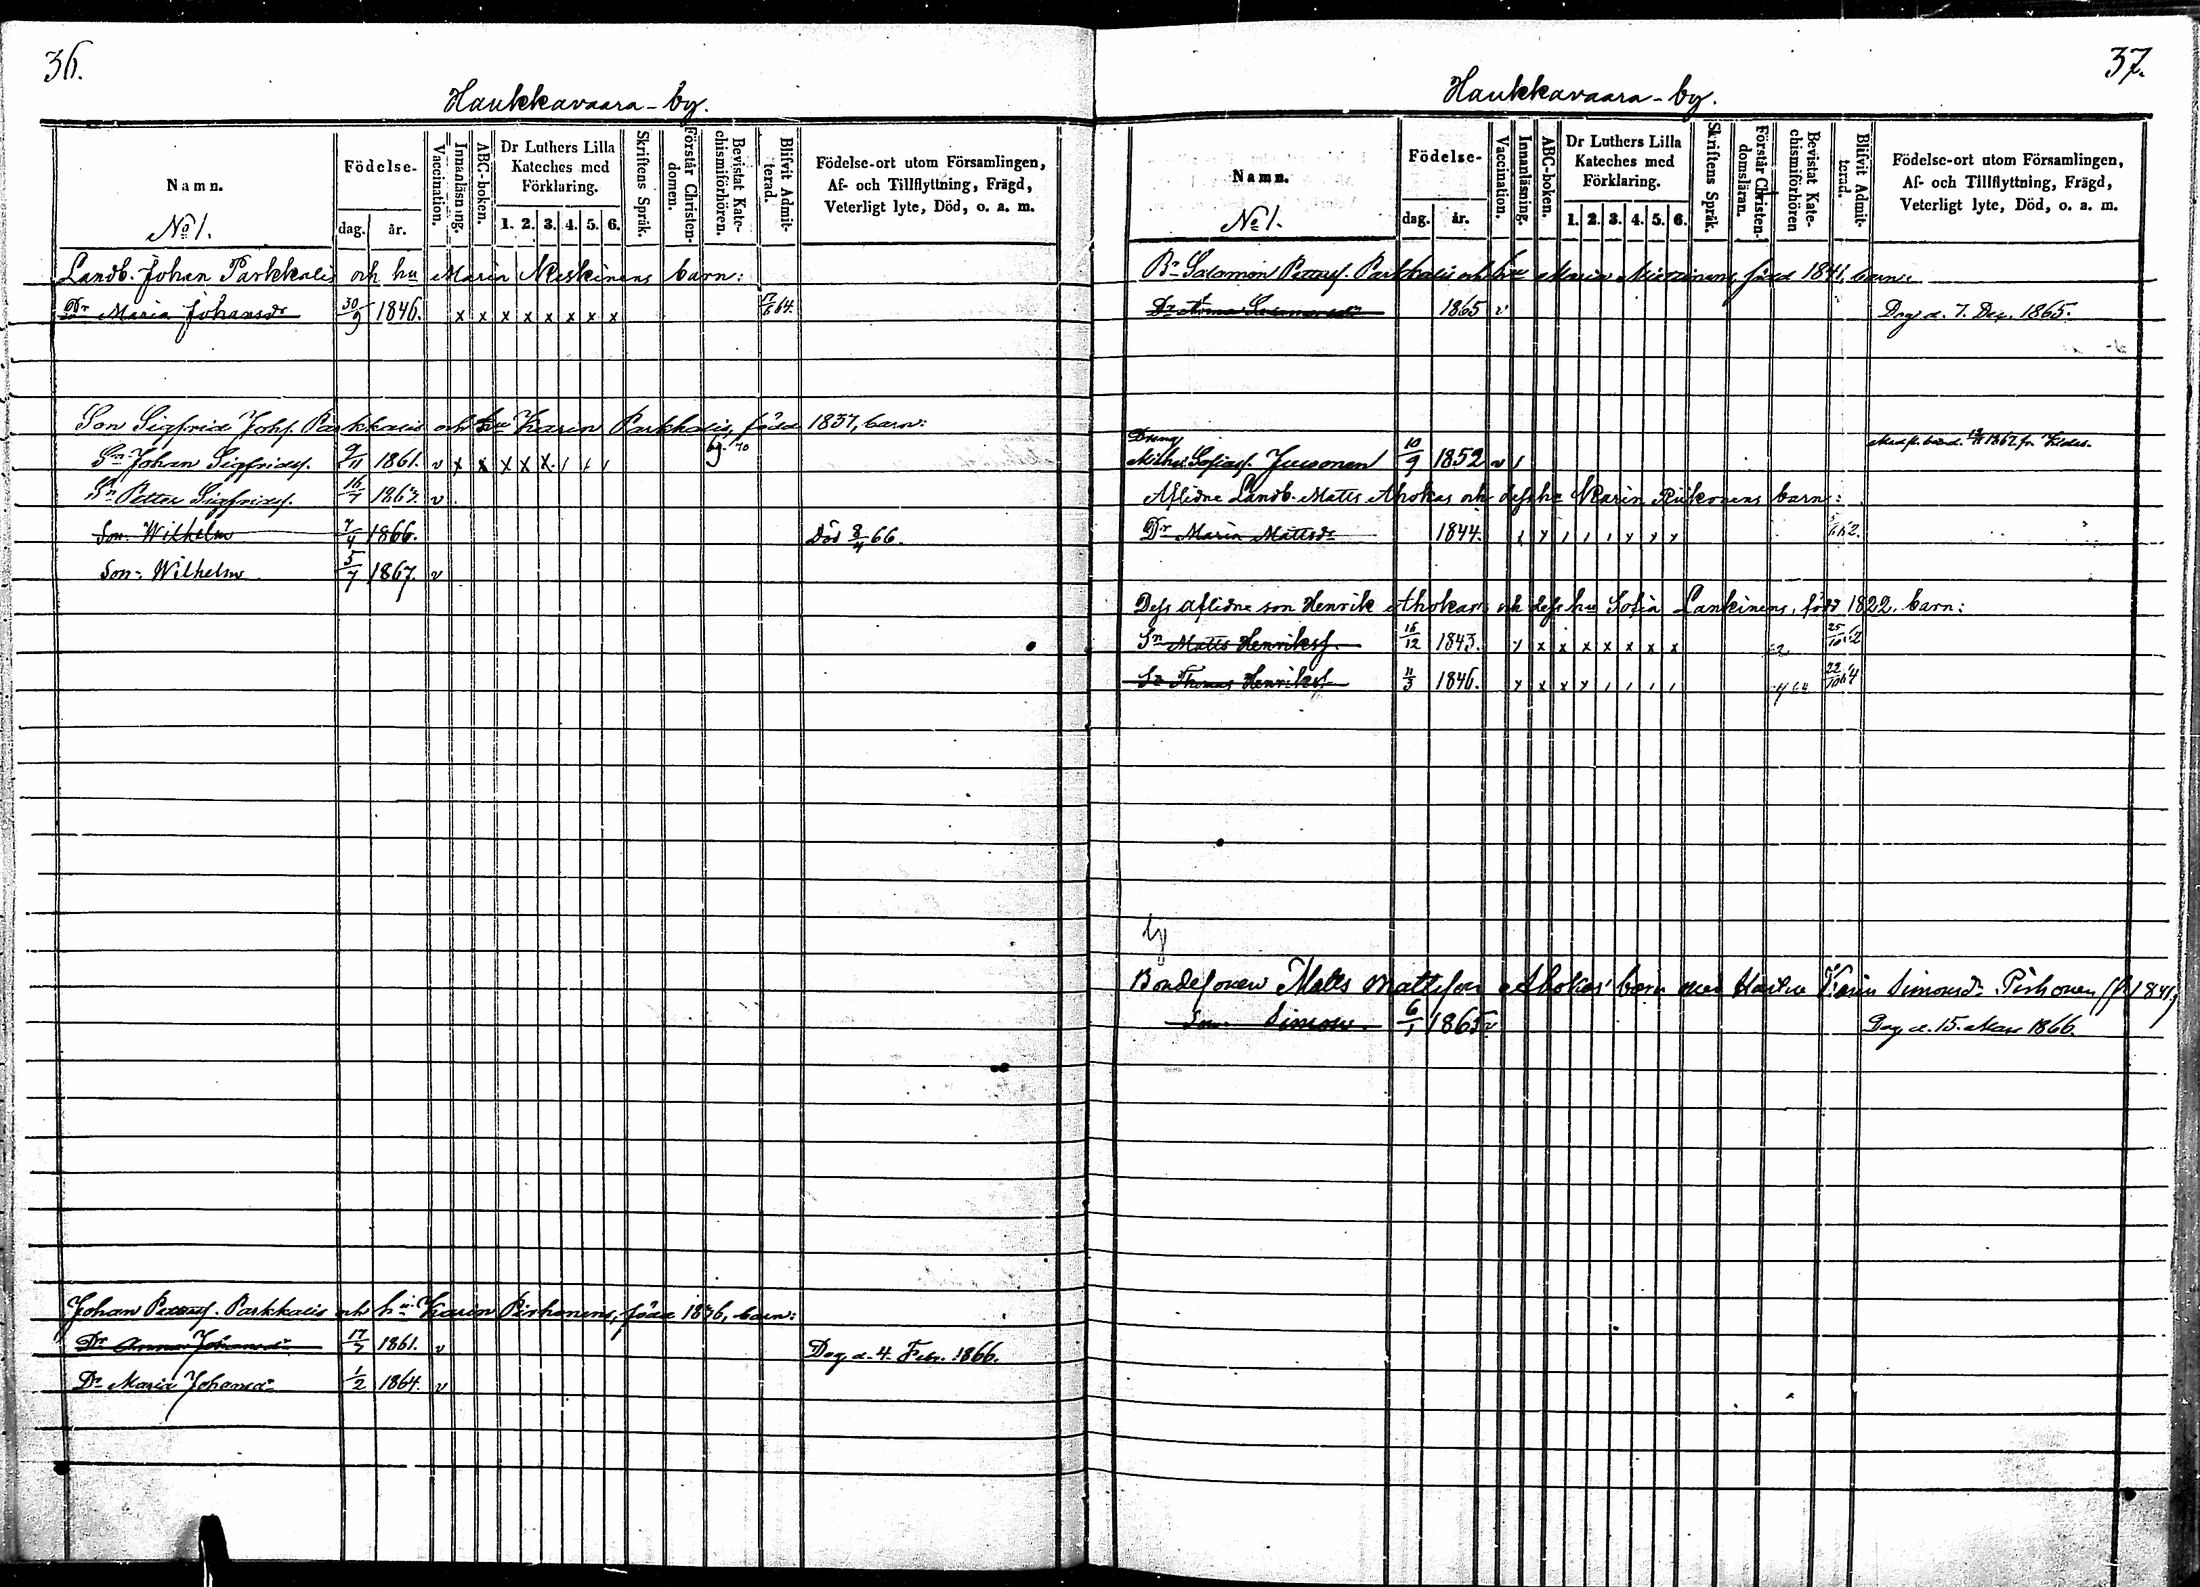 36.
Haukkavaara-by.
Namn.
No 1.
Födelse-
dag.
år.
Vaccination.
Innanläsning.
ABC-boken.
Dr Luthers Lilla Kateches med Förklaring.
1. 2. 3. 4. 5. 6.
Skriftens Språk.
Förstår Christen-domen.
Bevistat Kate-chismiförhören.
Blifvit Admit-terad.
Födelse-ort utom Församlingen,
Af- och Tillflyttning, Frägd,
Veterligt lyte, Död, o. a. m.
Landb. Johan Parkkalis och hu Maria Meskinens barn:
Dr Maria Johansdr 30/9 1846. x x x x x x x x 17/6 64.
Son Sigfrid Johs. Parkkalis och hu Karin Parkkalis, född 1837, barn:
Sn Johan Sigfridss. 9/11 1861. v x x x x x / / / 70
Sn Petter Sigfridss. v
Son Wilhelm 1866. Död 66.
Son Wilhelm 5/7 1867. v
Johan Petterss. Parkkalis och hu Karin Pirhonens, född 1836, barn:
Dr Anna Johansdr 17/7 1861. v Dog d. 4. Febr. 1866.
Dr Maria Johansdr 1/2 1864. v
37.
Haukkavaara-by.
Namn.
No 1.
Födelse-
dag.
år.
Vaccination.
Innanläsning.
ABC-boken.
Dr Luthers Lilla Kateches med Förklaring.
1. 2. 3. 4. 5. 6.
Skriftens Språk.
Förstår Christen-domsläran.
Bevistat Kate-chismiförhören
Blifvit Admit-terad.
Födelse-ort utom Församlingen,
Af- och Tillflyttning, Frägd,
Veterligt lyte, Död, o. a. m.
Br Salomon Petterss. Parkkalis och hu Maria Miettinens, född 1841, barn:
Dr Anna 1865 v Dog d. 7. Dec. 1865.
Dräng
Juvonen 10/9 1852 v / 1867 fr.
Aflidne Landb. Matts Ahokas och dess hu Karin Riikonens barn:
Dr Maria Mattsdr 1844. 62.
Dess aflidne son Henrik Ahokas och dess hu Sofia Lankinens, född 1822, barn:
Sn Matts Henrikss. 1843. x x x x x x x 25/10 62
Sn Thomas Henrikss. 11/3 1846. 22/10 64
Bondesonen Matts Mattsson Ahokas' barn med Hustru Karin Simonsdr Pirhonen (f. 1841)
Son Simon. 6/1 1865 v Dog d. 15. Mars 1866.